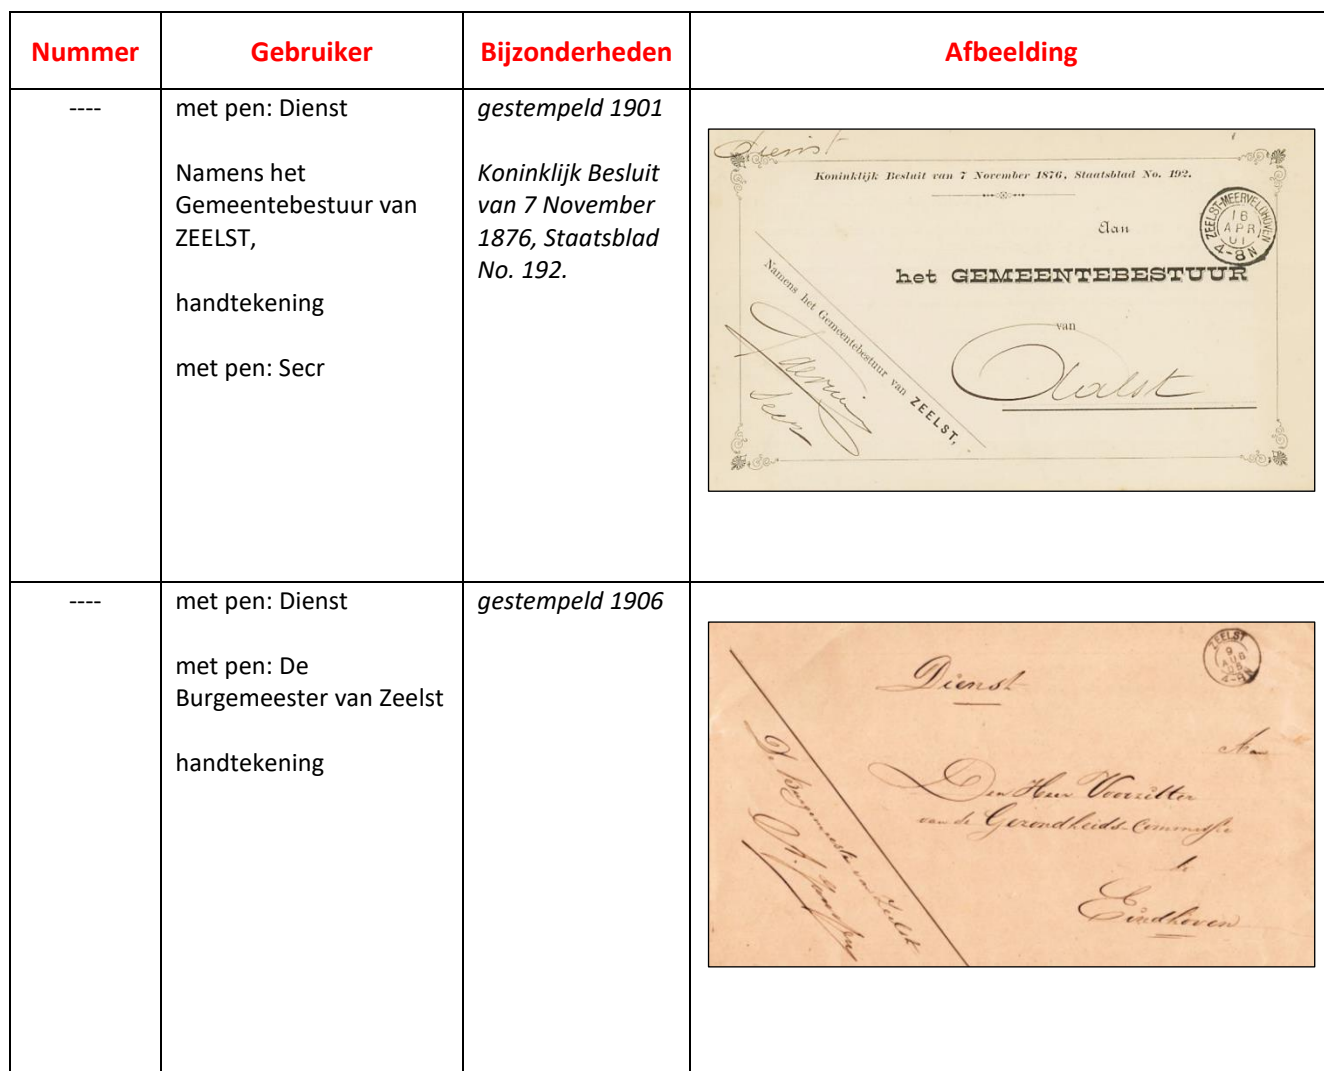 Nummer
Gebruiker
Bijzonderheden
Afbeelding
----
met pen: Dienst
Namens het
Gemeentebestuur van
ZEELST,
handtekening
met pen: Secr
gestempeld 1901
Koninklijk Besluit
van 7 November
1876, Staatsblad
No. 192.
Dienst
Koninklijk Besluit van 7 November 1876, Staatsblad No. 192.
ZEELST-MEERVELDHOVEN
16
APR
01
4-8N
Aan
het GEMEENTEBESTUUR
van
Aalst
Namens het Gemeentebestuur van ZEELST,
Secr
----
met pen: Dienst
met pen: De
Burgemeester van Zeelst
handtekening
gestempeld 1906
ZEELST
9
AUG
06
4-8N
Dienst
Aan
Den Heer Voorzitter
van de Gezondheids-Commissie
te
Eindhoven
De Burgemeester van Zeelst